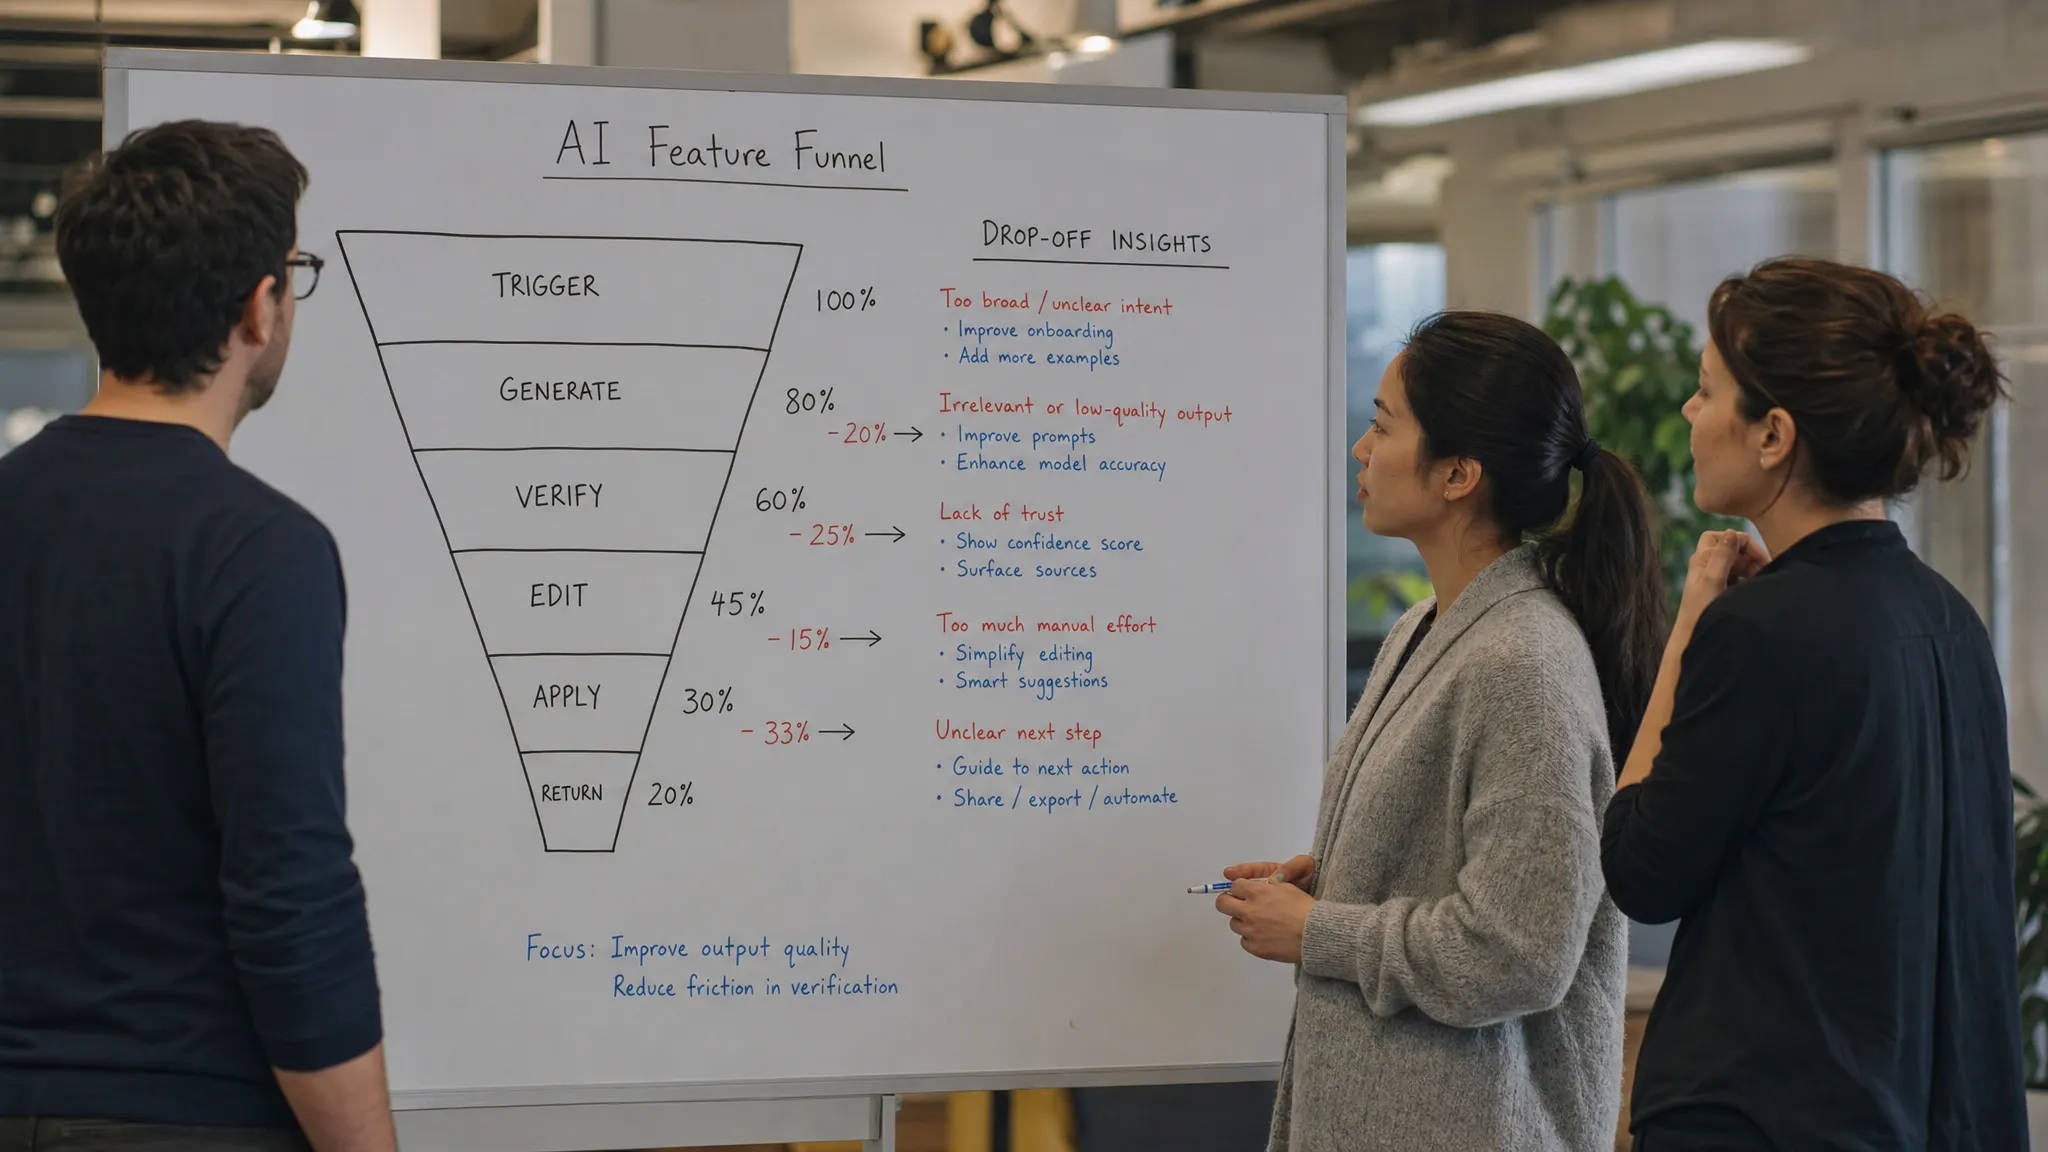 AI Feature Funnel
TRIGGER
100%
GENERATE
80%
- 20% →
VERIFY
60%
- 25% →
EDIT
45%
- 15% →
APPLY
30%
- 33% →
RETURN
20%
DROP-OFF INSIGHTS
Too broad / unclear intent
• Improve onboarding
• Add more examples
Irrelevant or low-quality output
• Improve prompts
• Enhance model accuracy
Lack of trust
• Show confidence score
• Surface sources
Too much manual effort
• Simplify editing
• Smart suggestions
Unclear next step
• Guide to next action
• Share / export / automate
Focus: Improve output quality
Reduce friction in verification